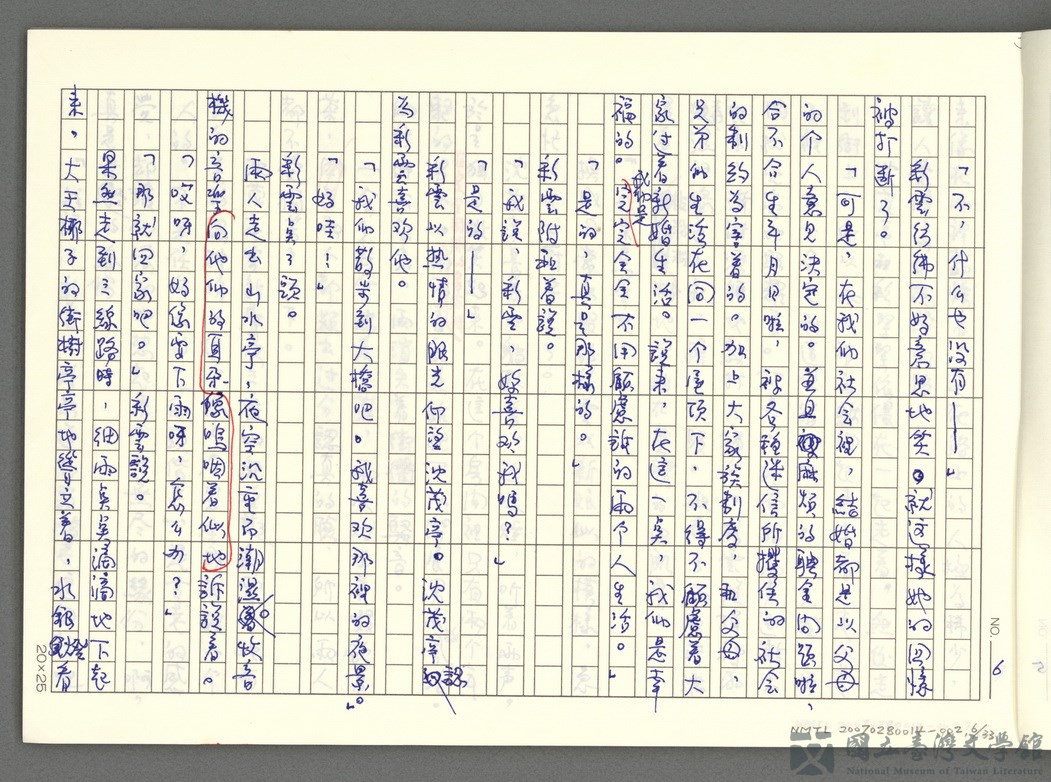 NO. 6
「不，什么也没有——」
彩雲彷彿不好意思地笑。就这樣她的回憶
被打断了。
「可是，在我们社会裡，结婚都是以父母
的个人意见决定的。并且麻煩的聘金问题啦，
合不合生年月日啦，被各種迷信所攫住的社会
的制约为害着的。加上大家族制度，和父母、
兄弟的生活在同一个屋顶下，不得不顧慮着大
家过着新婚生活。説来，在这一奌，我们是幸
福的。我们是完全不用顧慮誰的兩个人生活。」
「是的，真是那樣的。」
彩雲附和着說。
「沈我說，彩雲，妳喜欢我嗎？」
「是的——」
彩雲以热情的眼光仰望沈茂亭。沈茂亭説
为彩雲喜欢他。
「我们散步到大橋吧。我喜欢那裡的夜景。」
「好哇！」
彩雲奌了頭。
兩人走出山水亭，夜空沉重而潮湿，收音
機的音樂向他们的耳朵像嗚咽着似地訴說着。
「哎呀，好像要下雨呀，怎么办？」
「那就回家吧。」彩雲說。
果然走到三線路時，细雨奌奌滴滴地下起
来。大王椰子的街樹亭亭地聳立着，水銀燈看
20×25
NMTL 20070280014-002, 6/33
國立臺灣文學館
National Museum of Taiwan Literature